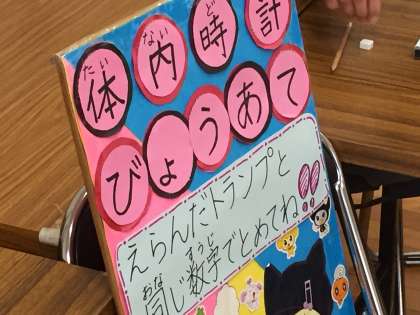 体内時計
たい ない ど けい
びょうあて
えらんだトランプと
同じ数字でとめてね!!
おな すうじ